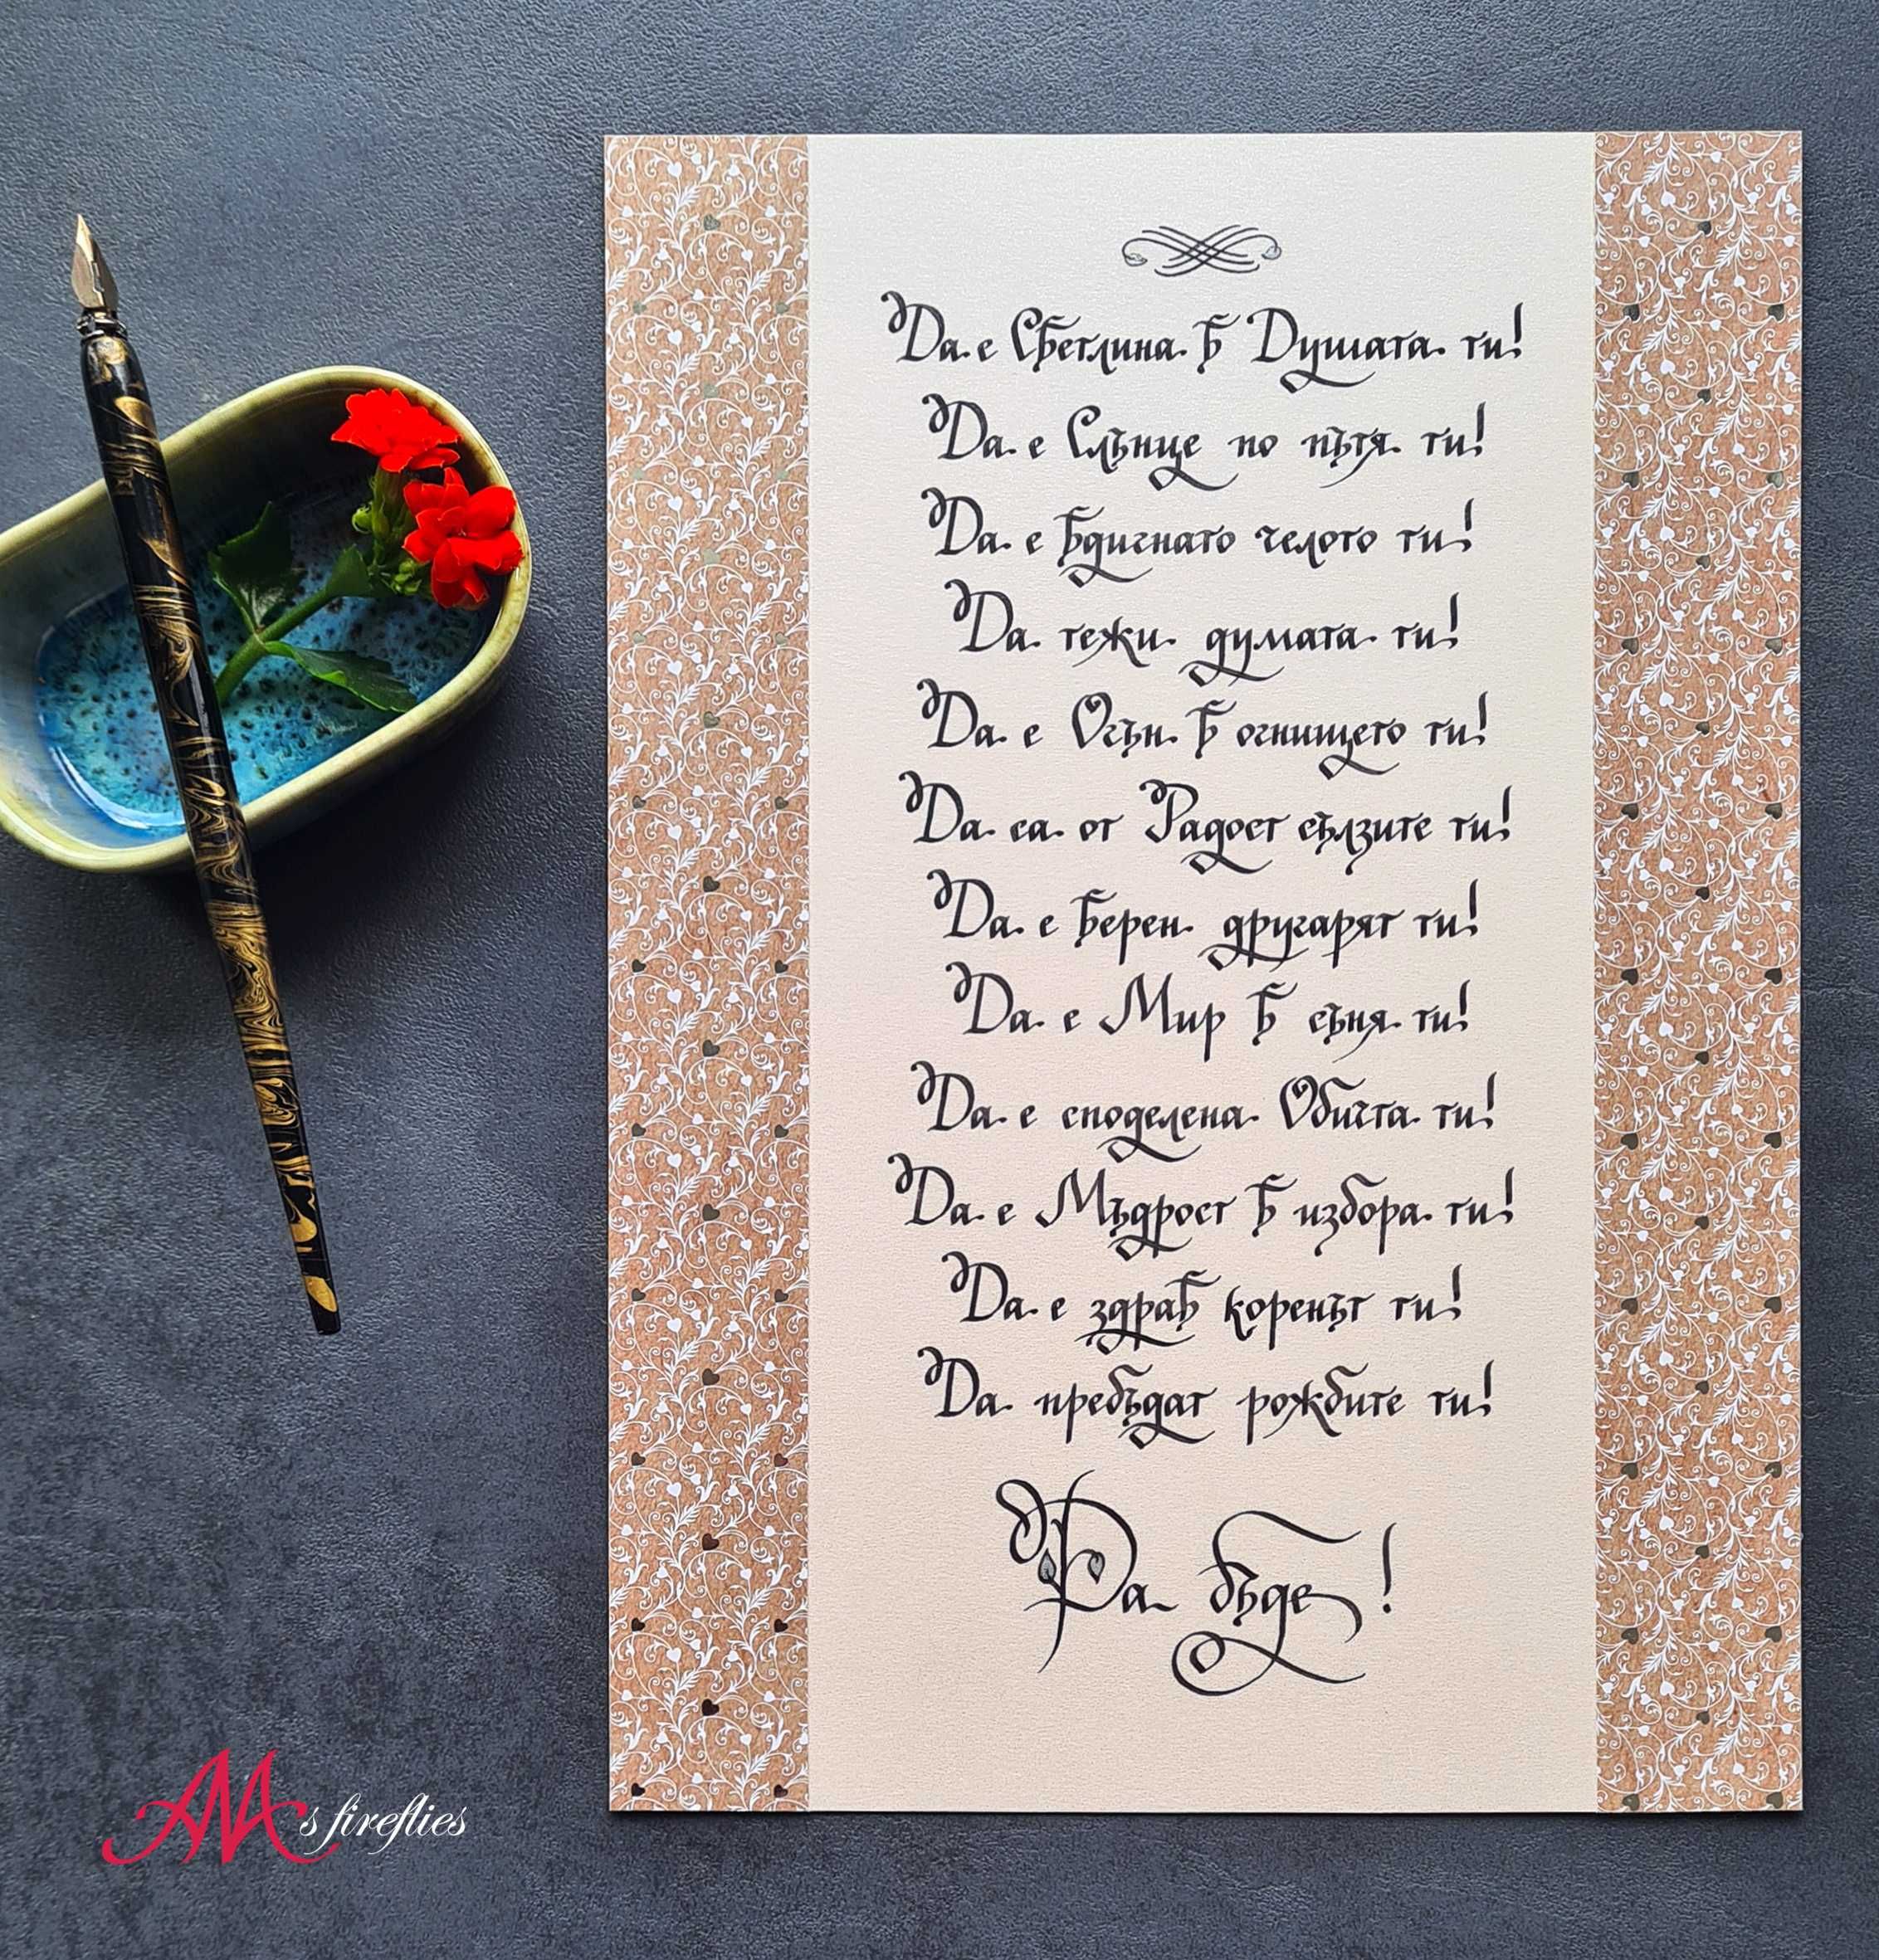 Да е Светлина в Душата ти!
Да е Слънце по пътя ти!
Да е вдигнато челото ти!
Да тежи думата ти!
Да е Огън в огнището ти!
Да са от Радост сълзите ти!
Да е верен другарят ти!
Да е Мир в съня ти!
Да е споделена Обичта ти!
Да е Мъдрост в избора ти!
Да е здрав коренът ти!
Да пребъдат рожбите ти!
Да бъде!
AM's fireflies